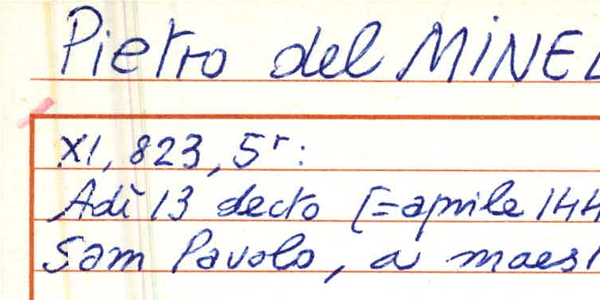 Pietro del MINEL
XI, 823, 5r:
Adì 13 decto [=aprile 144
Sam Pavolo, a maest